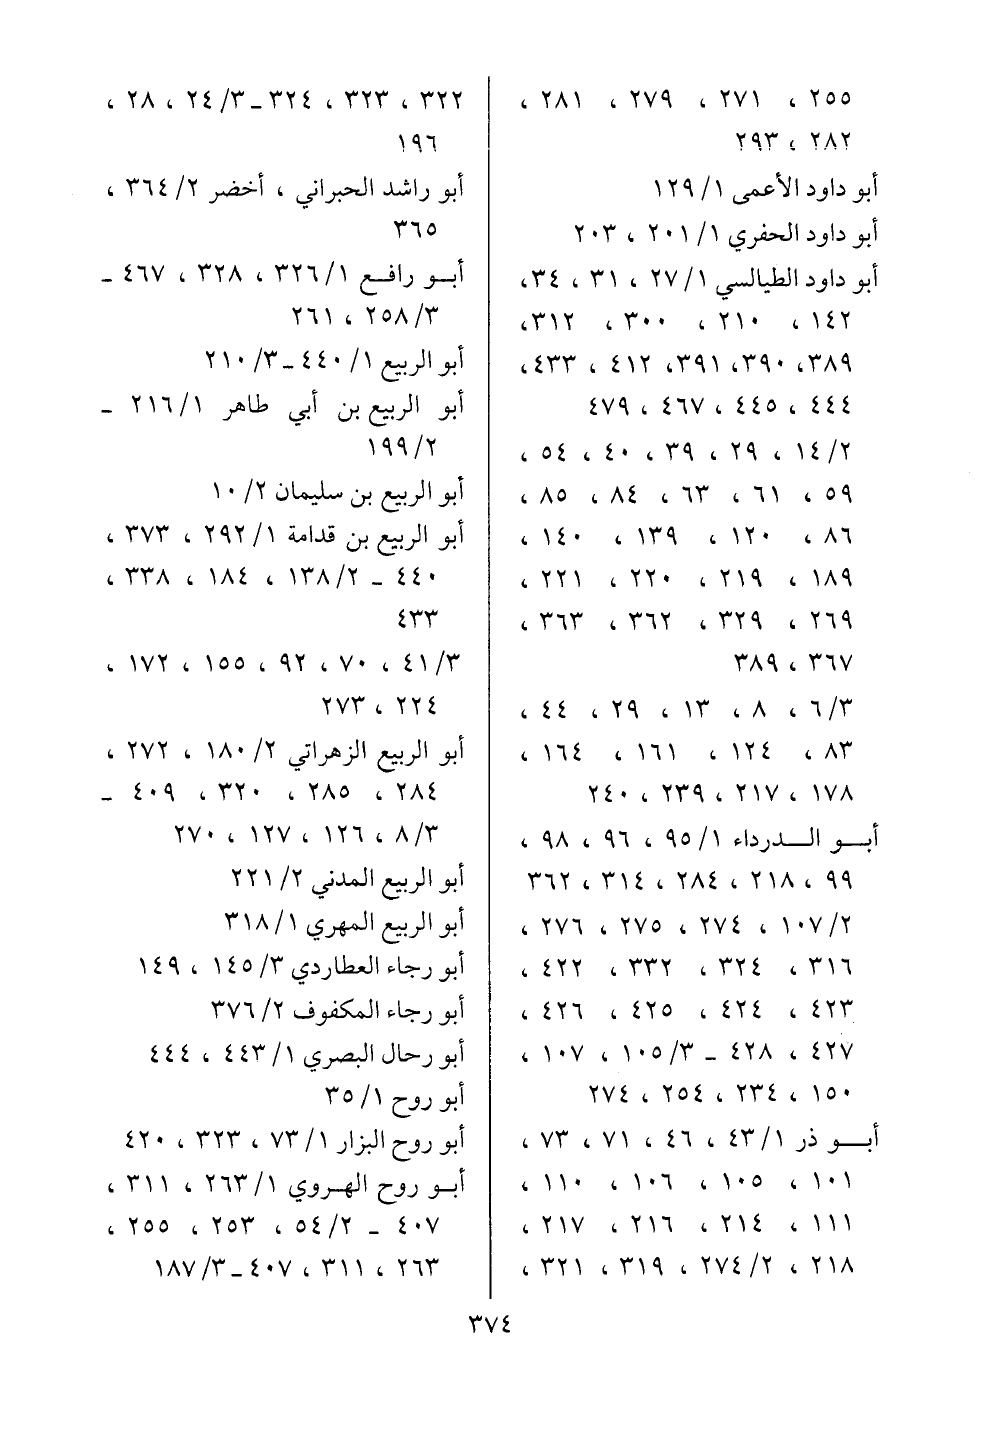 ٢٥٥ ، ٢٧١ ، ٢٧٩ ، ٢٨١ ،
٢٨٢ ، ٢٩٣
أبو داود الأعمى ١/ ١٢٩
أبو داود الحفري ١/ ٢٠١ ، ٢٠٣
أبو داود الطيالسي ١/ ٢٧ ، ٣١ ، ٣٤،
١٤٢ ، ٢١٠ ، ٣٠٠ ، ٣١٢،
٣٨٩، ٣٩٠، ٣٩١، ٤١٢ ، ٤٣٣،
٤٤٤ ، ٤٤٥ ، ٤٦٧ ، ٤٧٩
٢/ ١٤ ، ٢٩ ، ٣٩ ، ٤٠ ، ٥٤ ،
٥٩ ، ٦١ ، ٦٣ ، ٨٤ ، ٨٥ ،
٨٦ ، ١٢٠ ، ١٣٩ ، ١٤٠ ،
١٨٩ ، ٢١٩ ، ٢٢٠ ، ٢٢١ ،
٢٦٩ ، ٣٢٩ ، ٣٦٢ ، ٣٦٣ ،
٣٦٧ ، ٣٨٩
٣/ ٦ ، ٨ ، ١٣ ، ٢٩ ، ٤٤ ،
٨٣ ، ١٢٤ ، ١٦١ ، ١٦٤ ،
١٧٨ ، ٢١٧ ، ٢٣٩ ، ٢٤٠
أبـــو الـــدرداء ١/ ٩٥ ، ٩٦ ، ٩٨ ،
٩٩ ، ٢١٨ ، ٢٨٤ ، ٣١٤ ، ٣٦٢
٢/ ١٠٧ ، ٢٧٤ ، ٢٧٥ ، ٢٧٦ ،
٣١٦ ، ٣٢٤ ، ٣٣٢ ، ٤٢٢ ،
٤٢٣ ، ٤٢٤ ، ٤٢٥ ، ٤٢٦ ،
٤٢٧ ، ٤٢٨ ـ ٣/ ١٠٥ ، ١٠٧ ،
١٥٠ ، ٢٣٤ ، ٢٥٤ ، ٢٧٤
أبـــو ذر ١/ ٤٣ ، ٤٦ ، ٧١ ، ٧٣ ،
١٠١ ، ١٠٥ ، ١٠٦ ، ١١٠ ،
١١١ ، ٢١٤ ، ٢١٦ ، ٢١٧ ،
٢١٨ ، ٢/ ٢٧٤ ، ٣١٩ ، ٣٢١ ،
٣٢٢ ، ٣٢٣ ، ٣٢٤ ـ ٣/ ٢٤ ، ٢٨ ،
١٩٦
أبو راشد الحبراني ، أخضر ٢/ ٣٦٤ ،
٣٦٥
أبــو رافــع ١/ ٣٢٦ ، ٣٢٨ ، ٤٦٧ ـ
٣/ ٢٥٨ ، ٢٦١
أبو الربيع ١/ ٤٤٠ ـ ٣/ ٢١٠
أبو الربيع بن أبي طاهر ١/ ٢١٦ ـ
٢/ ١٩٩
أبو الربيع بن سليمان ٢/ ١٠
أبو الربيع بن قدامة ١/ ٢٩٢ ، ٣٧٣ ،
٤٤٠ ـ ٢/ ١٣٨ ، ١٨٤ ، ٣٣٨ ،
٤٣٣
٣/ ٤١ ، ٧٠ ، ٩٢ ، ١٥٥ ، ١٧٢ ،
٢٢٤ ، ٢٧٣
أبو الربيع الزهراتي ٢/ ١٨٠ ، ٢٧٢ ،
٢٨٤ ، ٢٨٥ ، ٣٢٠ ، ٤٠٩ ـ
٣/ ٨ ، ١٢٦ ، ١٢٧ ، ٢٧٠
أبو الربيع المدني ٢/ ٢٢١
أبو الربيع المهري ١/ ٣١٨
أبو رجاء العطاردي ٣/ ١٤٥ ، ١٤٩
أبو رجاء المكفوف ٢/ ٣٧٦
أبو رحال البصري ١/ ٤٤٣ ، ٤٤٤
أبو روح ١/ ٣٥
أبو روح البزار ١/ ٧٣ ، ٣٢٣ ، ٤٢٠
أبــو روح الهــروي ١/ ٢٦٣ ، ٣١١ ،
٤٠٧ ـ ٢/ ٥٤ ، ٢٥٣ ، ٢٥٥ ،
٢٦٣ ، ٣١١ ، ٤٠٧ ـ ٣/ ١٨٧
٣٧٤